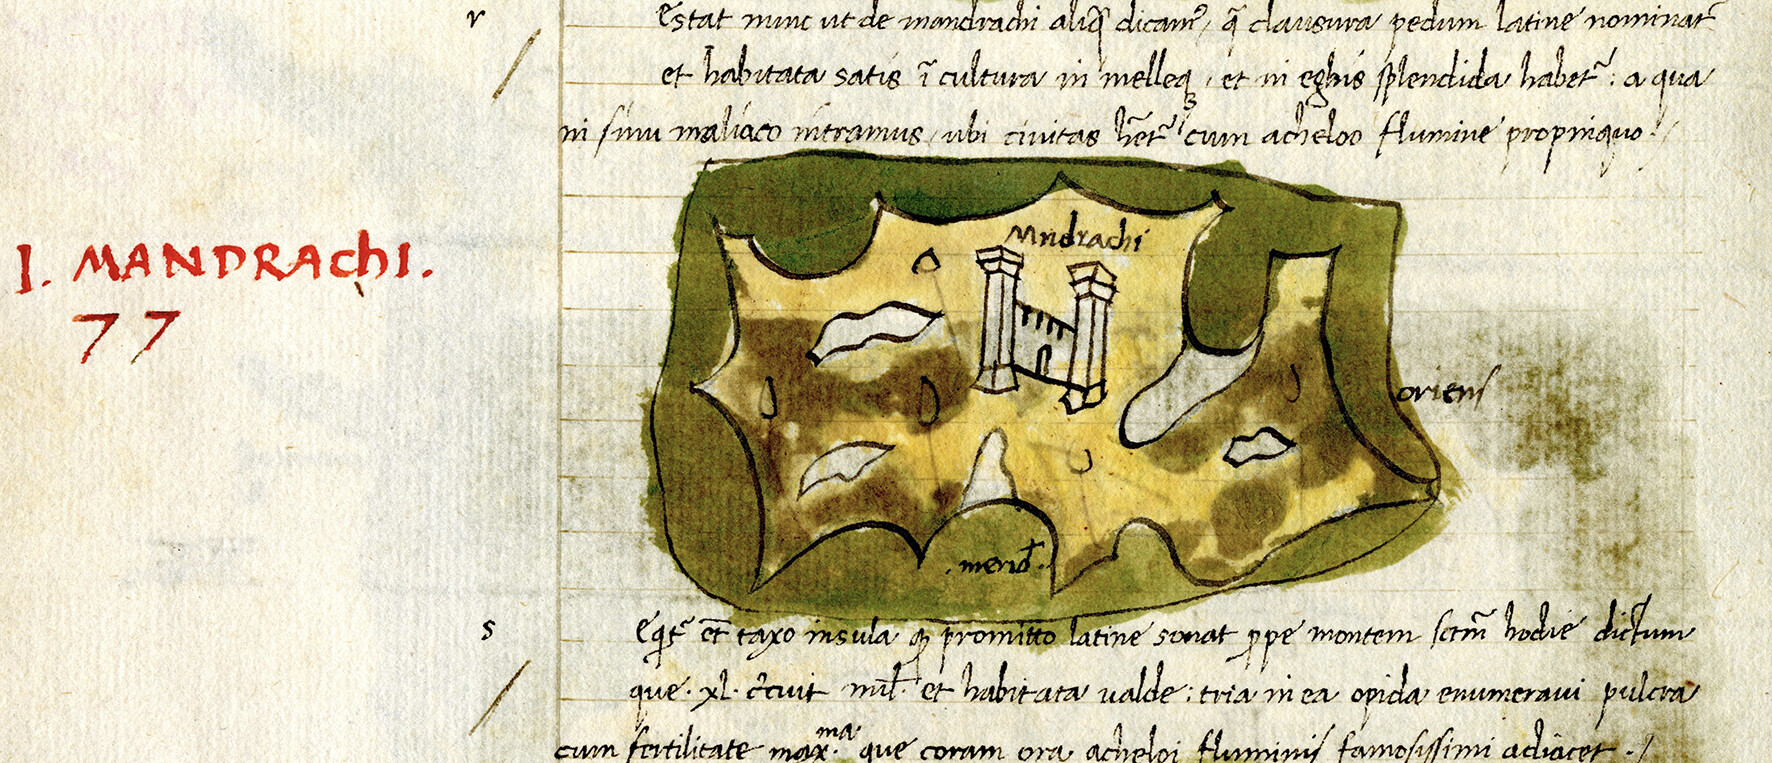 r
Estat nunc ut de mandrachi aliq̄ dicam⁹, q̄ clausura pedum latine nominat̄
et habitata satis ī cultura in melleq₃, et in eghis splendida habet̄: a qua
in sinu maliaco intramus, ubi civitas hēt̄ cum acheloo flumine propinquo.
I. MANDRAChI.
77
Mndrachi
oriens
.merid̄.
s
Eqt̄ et̄ taxo insula qꝫ promitto latine sonat ꝓpe montem sctm̄ hodie dictum
que .xl. c̄cuit mil̄. et habitata valde: tria in ea opida enumeravi pulcra
cum fertilitate max.ᵐᵃ que coram ora acheloi fluminis famosissimi adiacet .